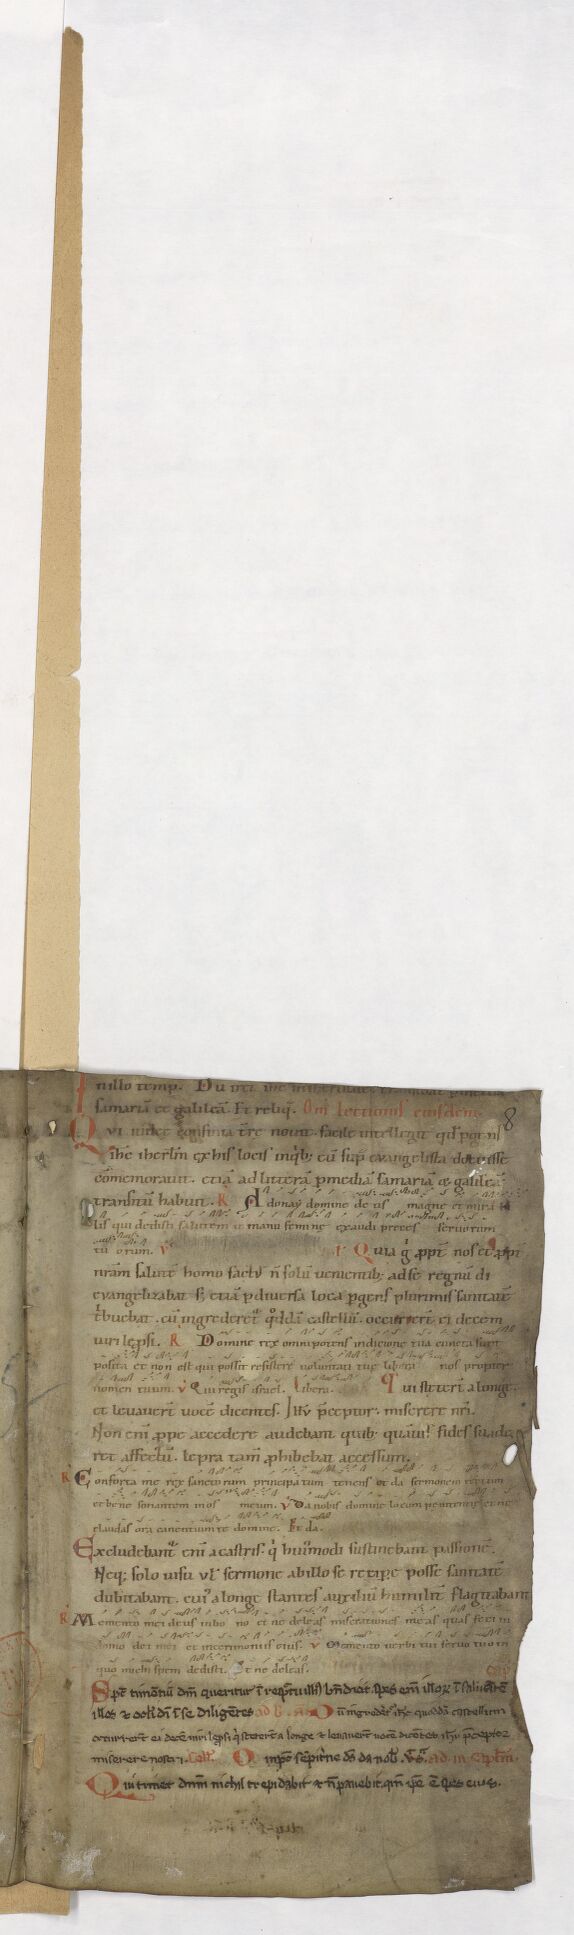 8
nillo temp. Du iret ihc
samariā et galileā. Et reliq̄. Om̄ lectionis eiusdem
Qui iudee confinia t̄re nouit. facile intelligit
ihc ihertm̄ ex his locis inq̄b; cū sup̄ evangelista docuisse
cōmemorauit. etiā ad litterā p̄mediā samariā et galileā
transitū habuit. R Adonay domine deus magne et mirabi
lis qui dedisti salutem in manu femine exaudi preces seruorum
tuorum. V R Quia ḡ ꝓpt̄ nos et ꝓpt̄
nr̄am salutē homo fact; n̄ solū uenientib; ad se regnū di
evangelizabat s; etiā p̄ diversa loca p̄gens plurimis sanitatē
t̄buebat. cū ingrederet̄ q̄ddā castellū. occurrer̄t ei decem
uiri lep̄si. R Domine rex omnipotens in dicione tua cuncta sunt
posita et non est qui possit resistere voluntati tue libera nos propter
nomen tuum. V Qui regis israel. Libera. Qui steter̄t a longe.
et levauer̄t uocē dicentes. Ihv p̄ceptor. miserere nr̄i.
Non eni ꝓpe accedere audebant quib; quāuis fides suade
ret affectū. lepra tam̄ ꝓhibebat accessum.
R Conforta me rex sanctorum principatum tenens et da sermonem rectum
et bene sonantem in os meum. V Da nobis domine locum penitentie et ne
claudas ora canentium te domine. Et da.
Excludebant̄ eni a castris. q̄ hui;modi sustinebant passionē.
Neq; solo uisu vl̄ sermone ab illo se recip̄e posse sanitatē
dubitabant. cui; a longe stantes auxiliū humilit̄ flagitabant
R Memento mei deus in bono et ne deleas miserationes meas quas feci in
domo dei mei et in cerimoniis eius. V Memento verbi tui seruo tuo in
quo michi spem dedisti. Et ne deleas. cap̄
Sp̄c timentiū dm̄ queritur
illos et oculi di ī se diligentes ad b. a. Dū ingrederet̄ ihc quoddā castellum
occurrer̄t ei decē viri lep̄si q̄ steter̄t a longe et levauer̄t uocē dicētes ihv p̄ceptor
miserere nostri. Coll. Omp̄s sēpit̄ne ds da nob̄.
Qui timet dnm̄ nichil trepidabit et n̄ pauebit. qm̄ ip̄e ē spes eius.